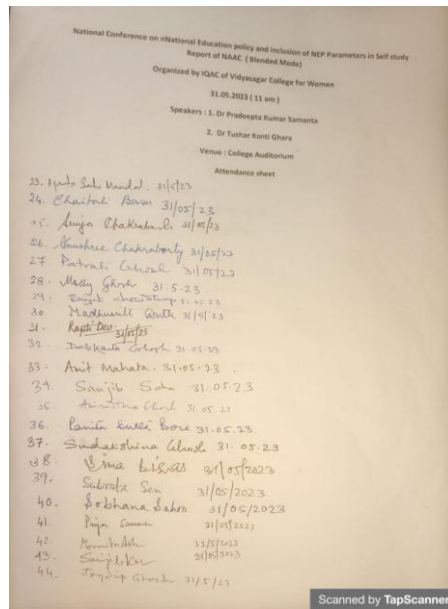 National Conference on nNational Education policy and inclusion of NEP Parameters in Self study
Report of NAAC ( Blended Mode)
Organized by IQAC of Vidyasagar College for Women
31.05.2023 ( 11 am )
Speakers : 1. Dr Pradeepta Kumar Samanta
2. Dr Tushar Kanti Ghara
Venue : College Auditorium
Attendance sheet
23. Saha Mandal. 31/5/23
24. Chaitali Basu 31/05/23
25. Chakrabarti 31/05/23
26. Anushree Chakraborty 31/05/23
27. Patrali Ghosh 31/05/23
28. Molly Ghosh 31.5.23.
29. 31.05.23
30 31/5/23
31. Rapti Dev. 31/05/23
32. Ghosh 31.05.23
33. Amit Mahata. 31.05.23.
34. Sanjib Saha 31.05.23
35 Ghosh 31.05.23
36. Bose 31.05.23.
37. Sudakshina Ghosh 31.05.23
38. Sima Biswas 31/05/2023
39. Subrata Sen 31/05/2023
40. Sobhana Sahoo 31/05/2023
41. Priya 31/05/2023
42. 31/5/2023
43. 31/05/2023
44. Joydip Ghosh 31/5/23
Scanned by TapScanner